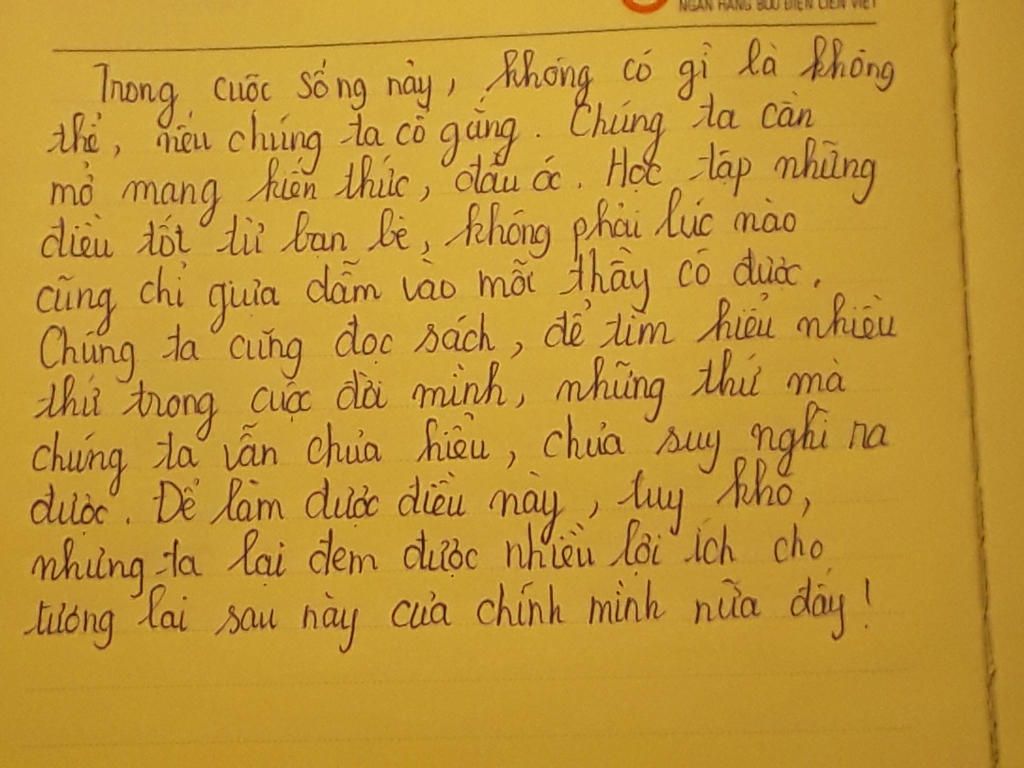 NGÂN HÀNG BƯU ĐIỆN LIÊN VIỆT
Trong cuộc sống này, không có gì là không
thể, nếu chúng ta cố gắng. Chúng ta cần
mở mang kiến thức, đầu óc. Học tập những
điều tốt từ bạn bè, không phải lúc nào
cũng chỉ giựa dẫm vào mỗi thầy cô được.
Chúng ta cũng đọc sách, để tìm hiểu nhiều
thứ trong cuộc đời mình, những thứ mà
chúng ta vẫn chưa hiểu, chưa suy nghĩ ra
được. Để làm được điều này, tuy khó,
nhưng ta lại đem được nhiều lợi ích cho
tương lai sau này của chính mình nữa đấy!